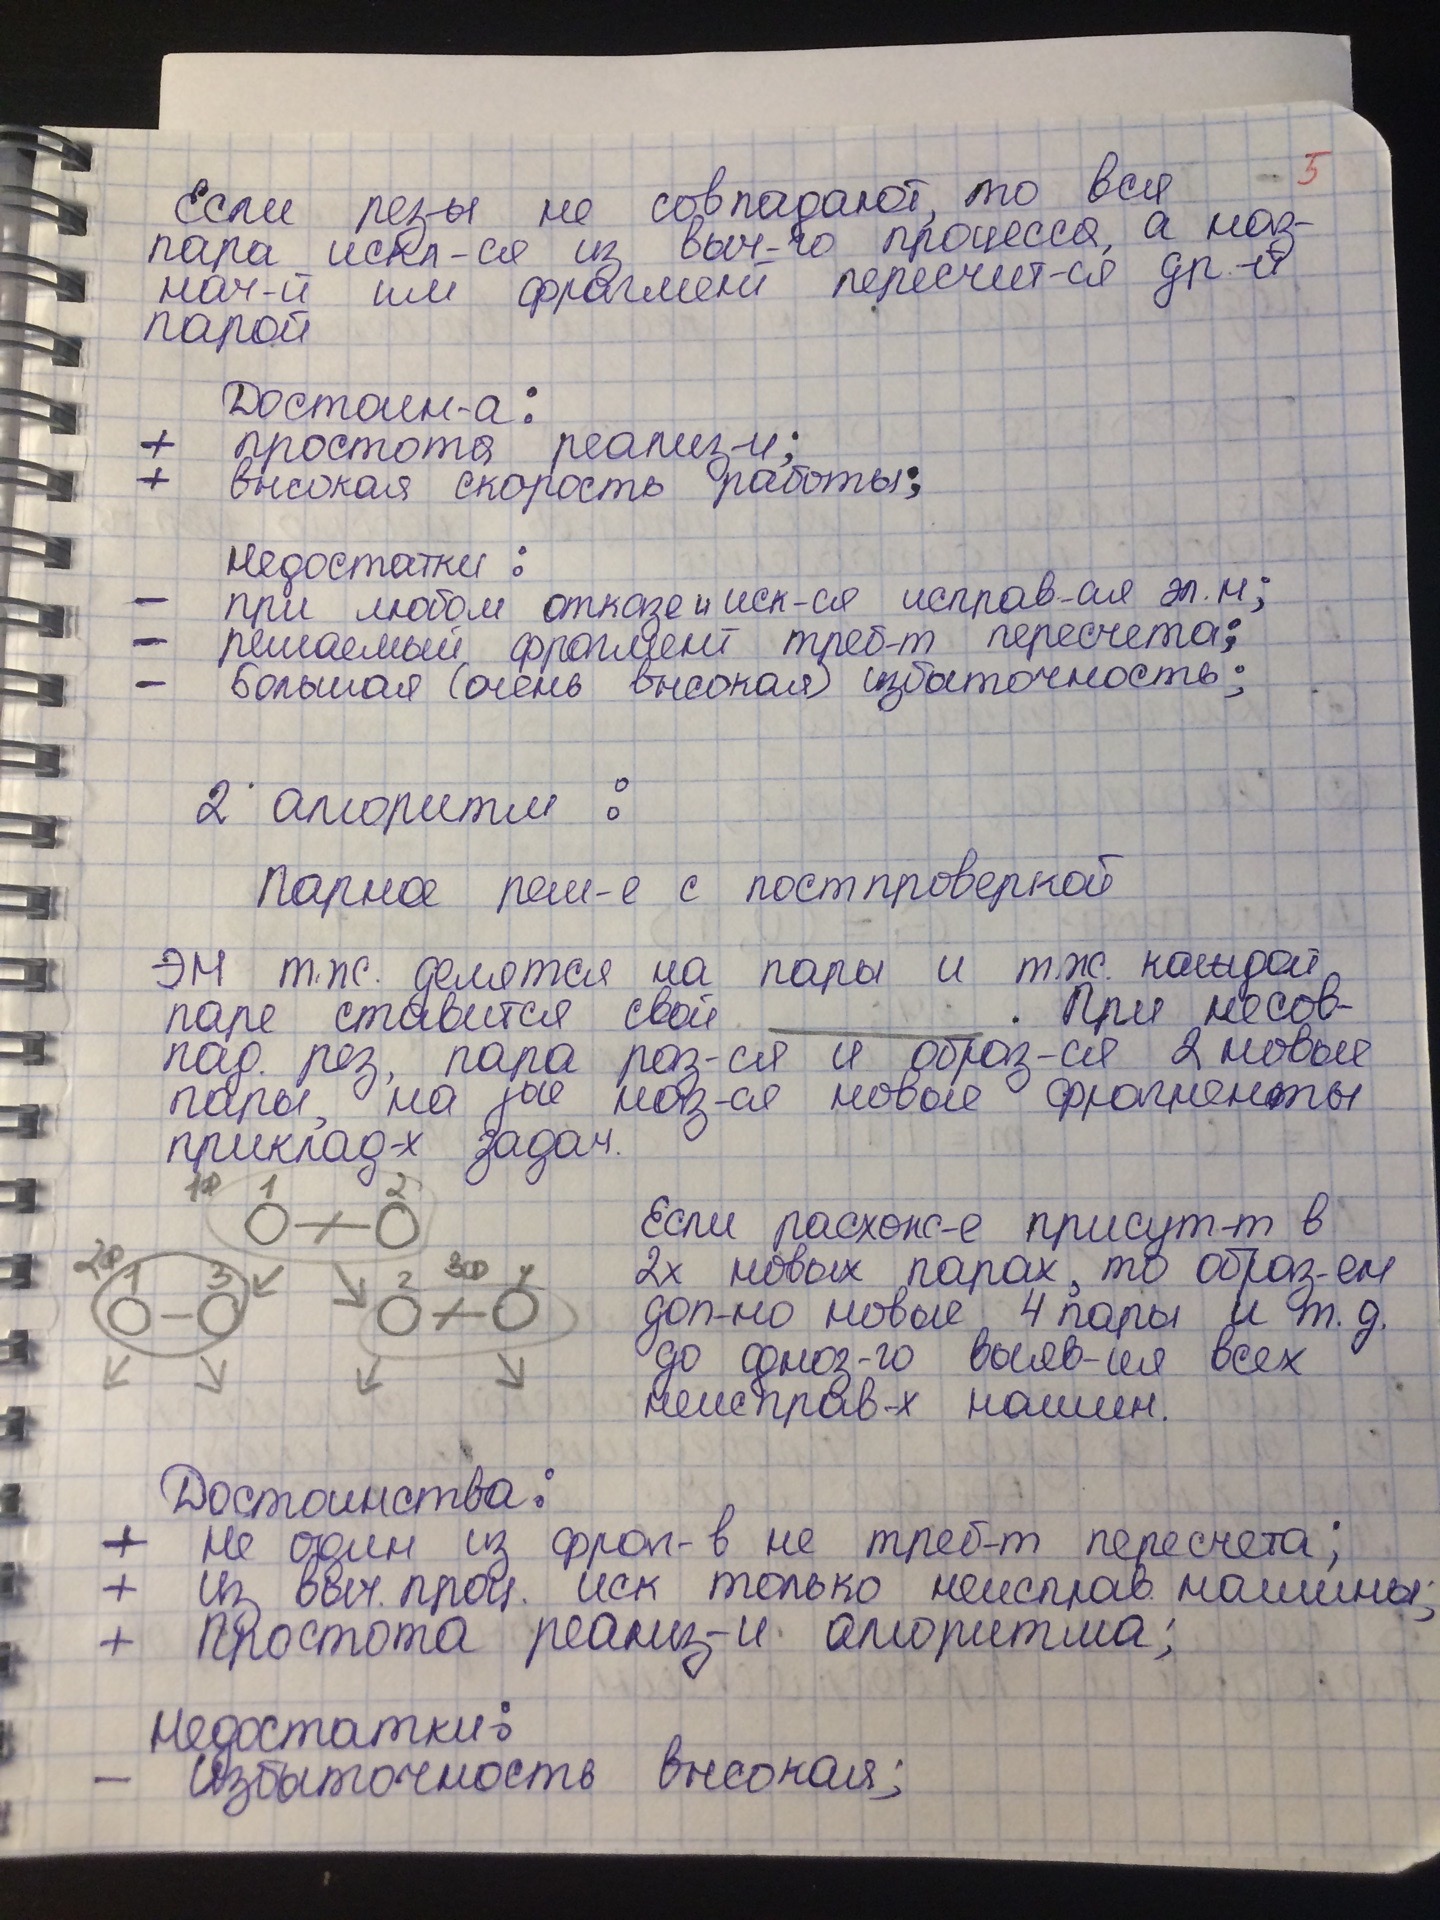 5
Если рез-ы не совпадают, то вся
пара искл-ся из выч-го процесса, а наз-
нач-й им фрагмент пересчит-ся др.-й
парой
Достоин-а:
+ простота реализ-и;
+ высокая скорость работы;
Недостатки:
- при любом отказе и иск-ся исправ-ая эл. м;
- решаемый фрагмент треб-т пересчета;
- большая (очень высокая) избыточность;
2 алгоритм:
Парное реш-е с постпроверкой
ЭМ т.ж. делятся на пары и т.ж. каждой
паре ставится свой ________. При несов-
пад. рез, пара раз-ся и образ-ся 2 новые
пары, на наз-ся новые фрагменты
приклад-х задач.
1Ф 1 2
2Ф 1 3 2 3Ф 4
Если расхож-е присут-т в
2х новых парах, то образ-ем
доп-но новые 4 пары и т.д.
до одноз-го выяв-ия всех
неисправ-х машин.
Достоинства:
+ Не один из фраг-в не треб-т пересчета;
+ из выч. проц. иск только неисправ. машины;
+ Простота реализ-и алгоритма;
Недостатки:
- Избыточность высокая;